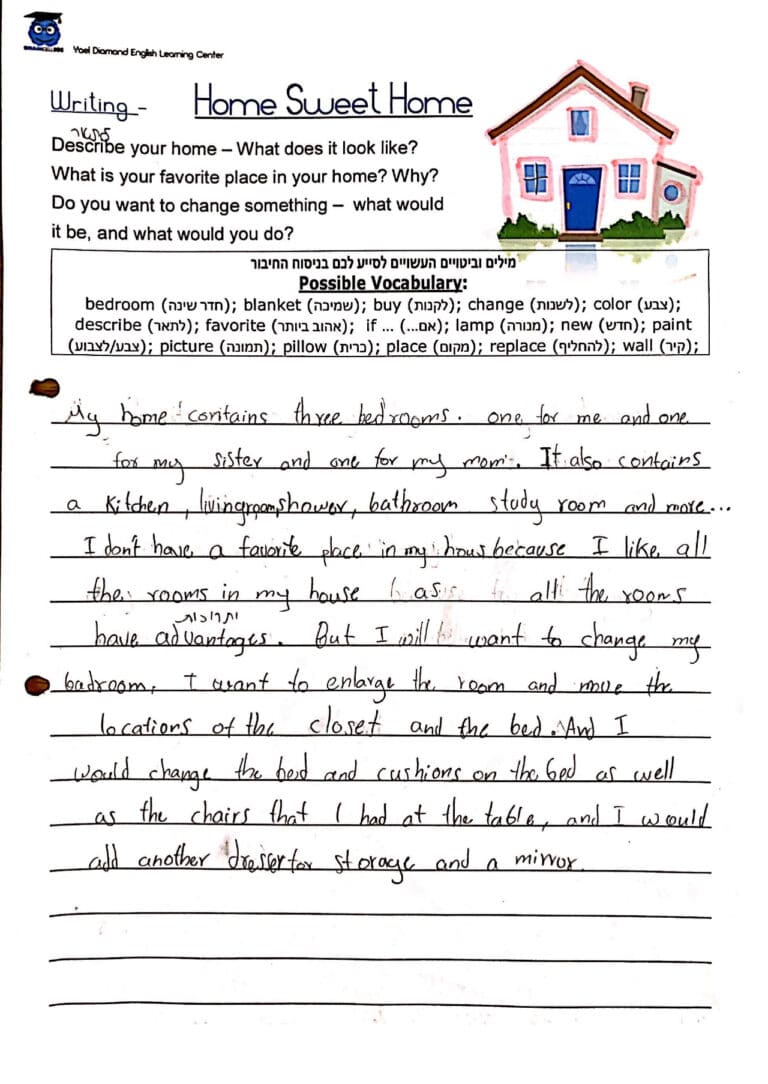 Yoel Diamond English Learning Center
Writing - Home Sweet Home
לתאר
Describe your home – What does it look like?
What is your favorite place in your home? Why?
Do you want to change something – what would
it be, and what would you do?
מילים וביטויים העשויים לסייע לכם בניסוח החיבור
Possible Vocabulary:
bedroom (חדר שינה); blanket (שמיכה); buy (לקנות); change (לשנות); color (צבע);
describe (לתאר); favorite (אהוב ביותר); if ... (אם...); lamp (מנורה); new (חדש); paint
(צבע/לצבוע); picture (תמונה); pillow (כרית); place (מקום); replace (להחליף); wall (קיר);
My home contains three bedrooms. one for me and one
for my sister and one for my mom. It also contains
a kitchen, livingroom, shower, bathroom study room and more...
I don't have a favorite place in my hous because I like all
the rooms in my house as all the rooms
יתרונות
have advantages. But I will want to change my
badroom, I want to enlarge the room and move the
locations of the closet and the bed. And I
would change the bed and cushions on the bed as well
as the chairs that I had at the table, and I would
add another dresser for storage and a mirror.